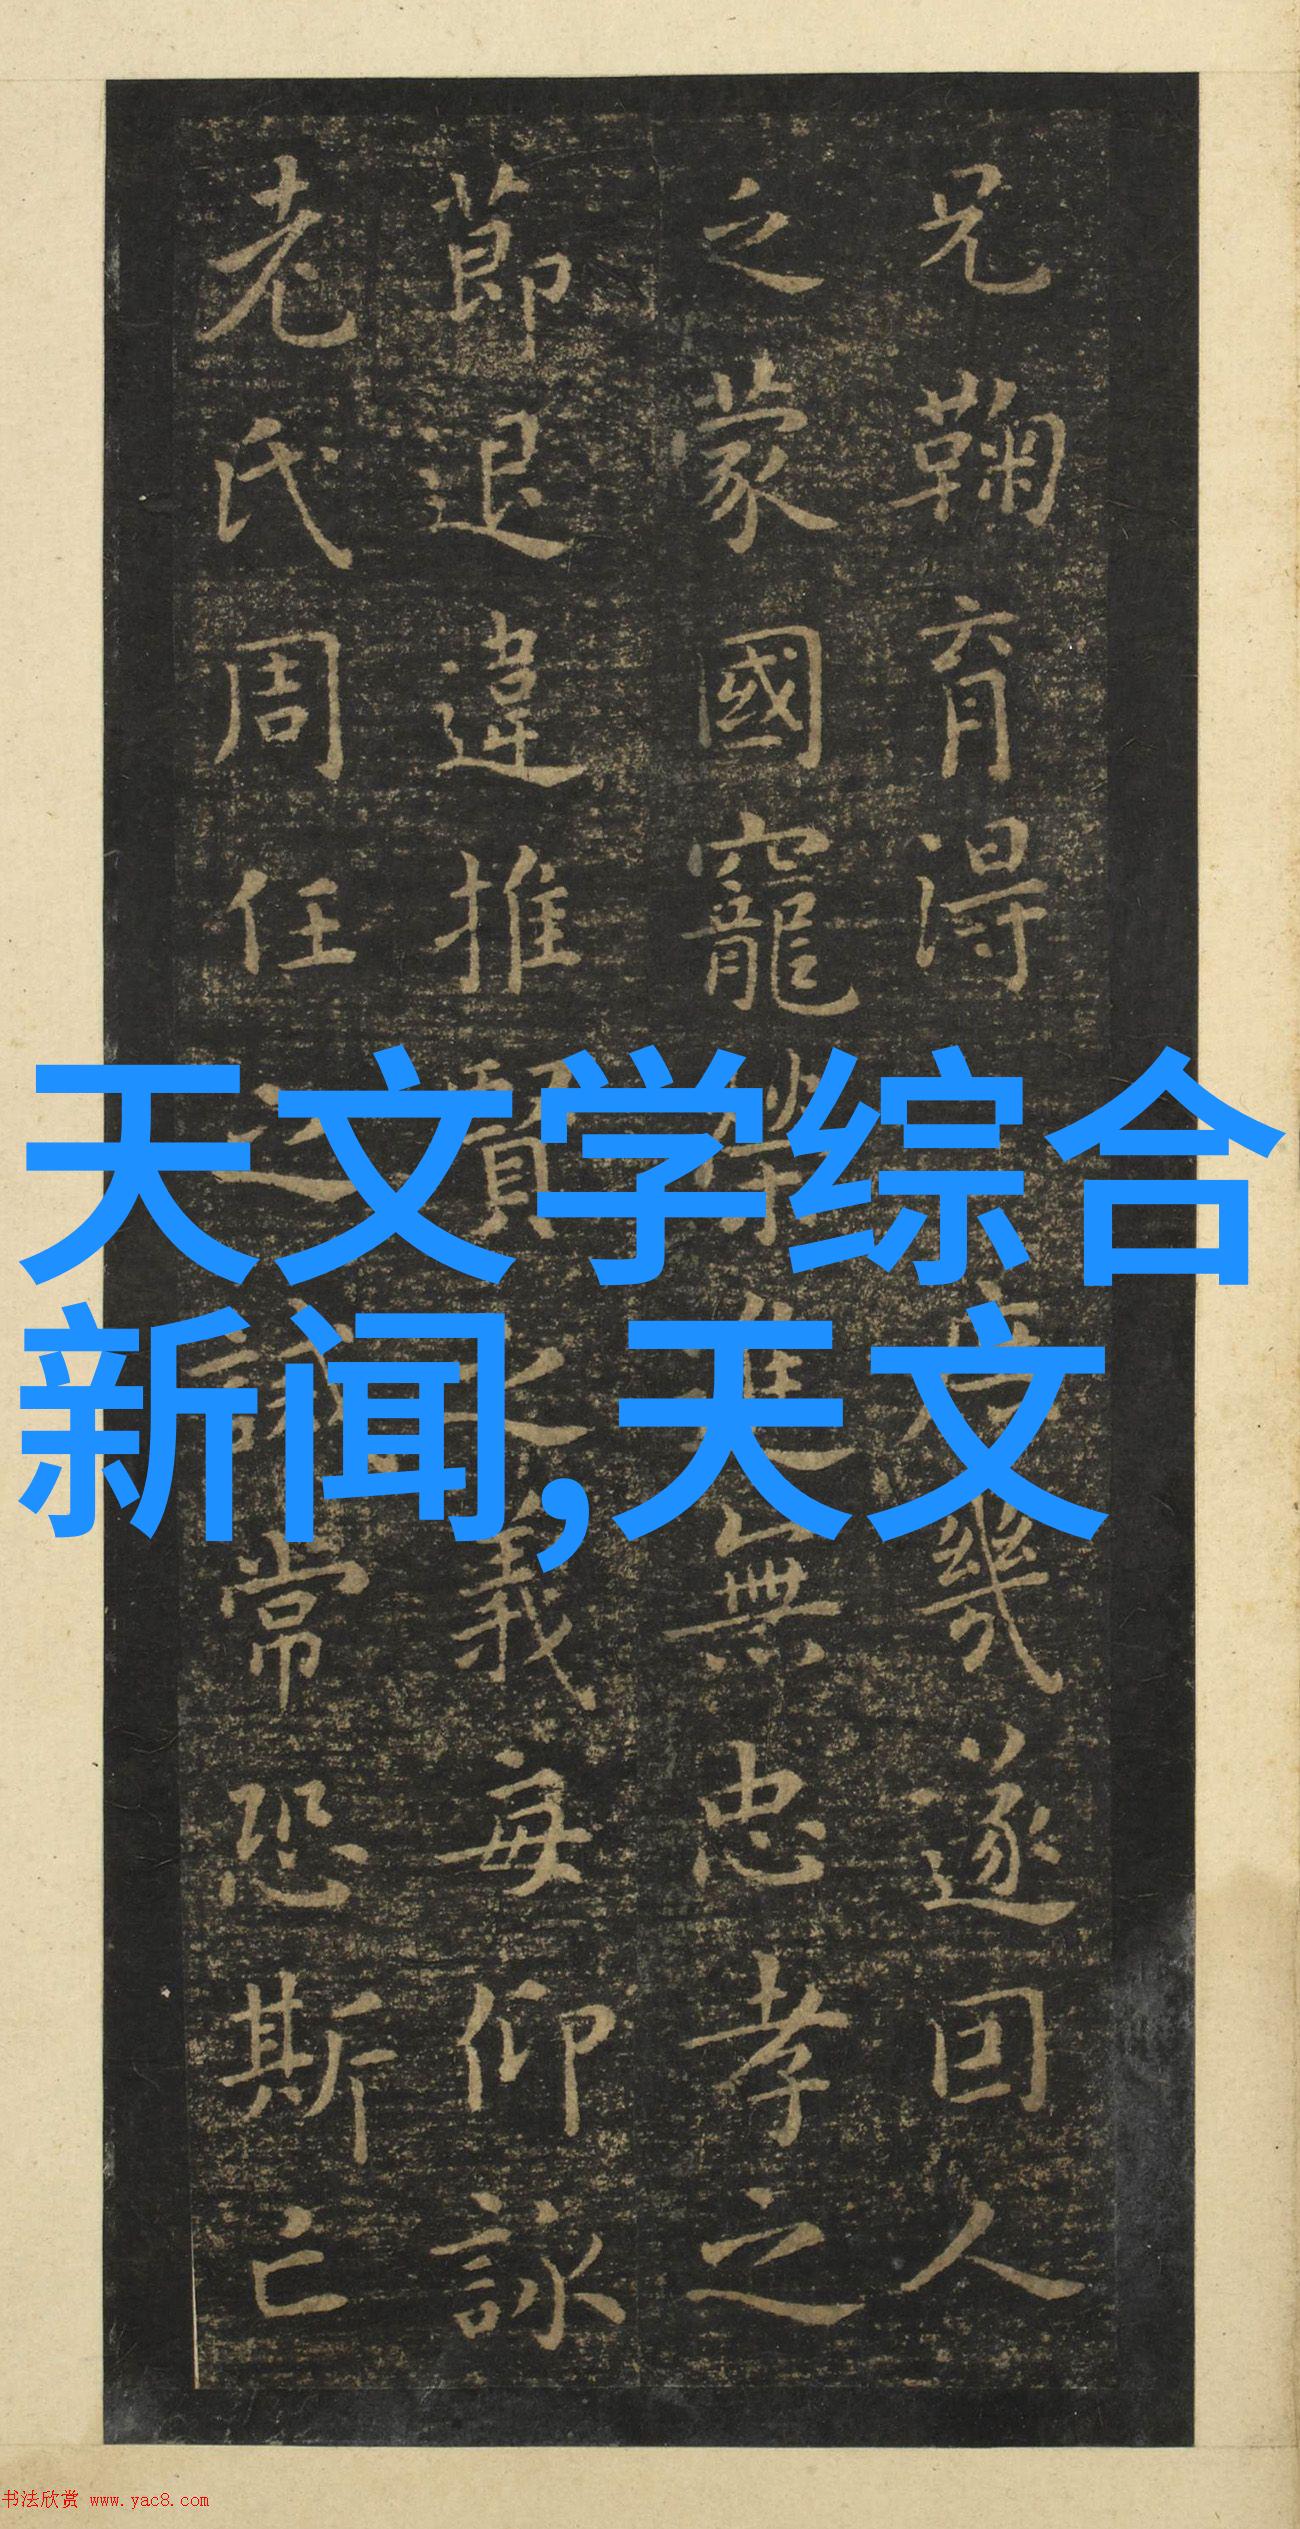 兄鞠育淂庶幾遂因人
之蒙國寵榮進無忠孝之
節退違推賢之義每仰詠
老氏周任之誡常恐斯亡
天文学综合
新闻,天文
书法欣赏 www.yac8.com